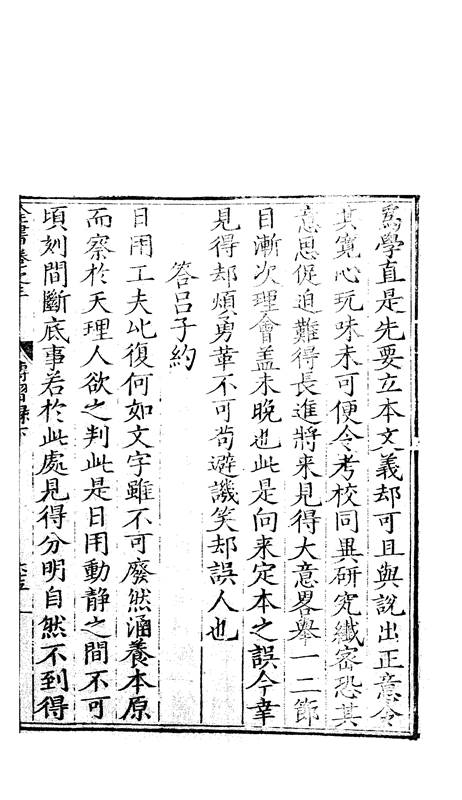 爲學直是先要立本文義却可且與說出正意令
其寛心玩味未可便令考校同異研究纖宻恐其
意思促迫難得長進將來見得大意畧舉一二節
目漸次理會盖未晩也此是向來定本之誤今幸
見得却煩勇革不可苟避譏笑却誤人也
答吕子約
日用工夫比復何如文字雖不可廢然涵養本原
而察於天理人欲之判此是日用動靜之間不可
頃刻間斷底事若於此處見得分明自然不到得
全書卷之三
傳習録下